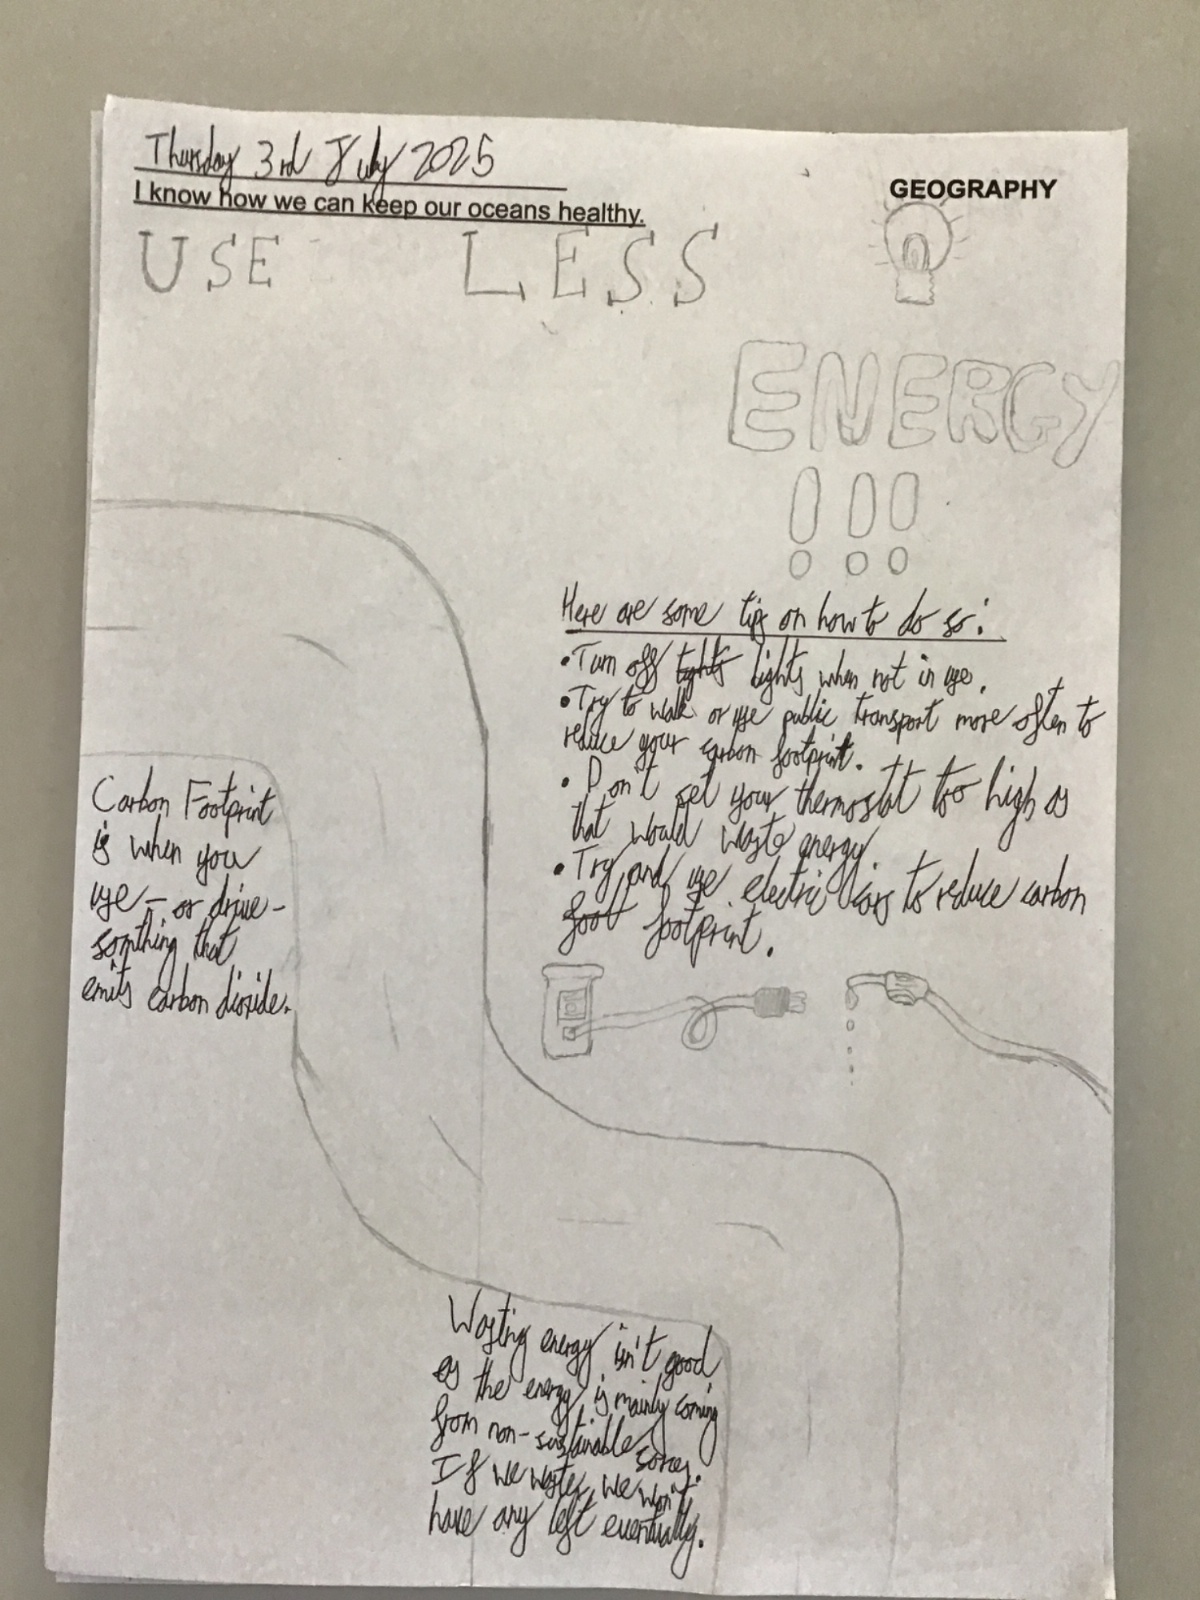 Thursday 3rd July 2025
I know how we can keep our oceans healthy.
GEOGRAPHY
USE LESS
ENERGY
!!!
Here are some tips on how to do so:
•Turn off lights lights when not in use.
•Try to walk or use public transport more often to
reduce your carbon footprint.
• Don't set your thermostat too high as
that would waste energy.
•Try and use electric cars to reduce carbon
foot footprint.
Carbon Footprint
is when you
use – or drive –
somthing that
emits carbon dioxide.
Wasting energy isn't good
as the energy is mainly coming
from non-sustainable
sorces.
If we waste, we won't
have any left eventually.